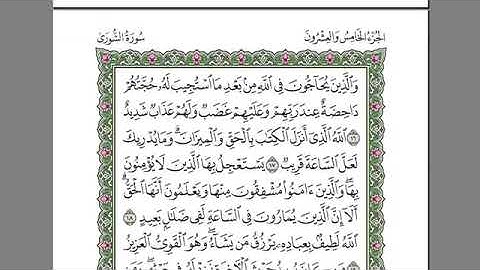 الجزء الخامس والعشرون
سورة الشورى
وَٱلَّذِينَ يُحَآجُّونَ فِى ٱللَّهِ مِنۢ بَعْدِ مَا ٱسْتُجِيبَ لَهُۥ حُجَّتُهُمْ
دَاحِضَةٌ عِندَ رَبِّهِمْ وَعَلَيْهِمْ غَضَبٌ وَلَهُمْ عَذَابٌ شَدِيدٌ
١٦ ٱللَّهُ ٱلَّذِىٓ أَنزَلَ ٱلْكِتَٰبَ بِٱلْحَقِّ وَٱلْمِيزَانَ ۗ وَمَا يُدْرِيكَ
لَعَلَّ ٱلسَّاعَةَ قَرِيبٌ ١٧ يَسْتَعْجِلُ بِهَا ٱلَّذِينَ لَا يُؤْمِنُونَ
بِهَا ۖ وَٱلَّذِينَ ءَامَنُوا۟ مُشْفِقُونَ مِنْهَا وَيَعْلَمُونَ أَنَّهَا ٱلْحَقُّ ۗ
أَلَآ إِنَّ ٱلَّذِينَ يُمَارُونَ فِى ٱلسَّاعَةِ لَفِى ضَلَٰلٍۭ بَعِيدٍ ١٨
ٱللَّهُ لَطِيفٌۢ بِعِبَادِهِۦ يَرْزُقُ مَن يَشَآءُ ۖ وَهُوَ ٱلْقَوِىُّ ٱلْعَزِيزُ